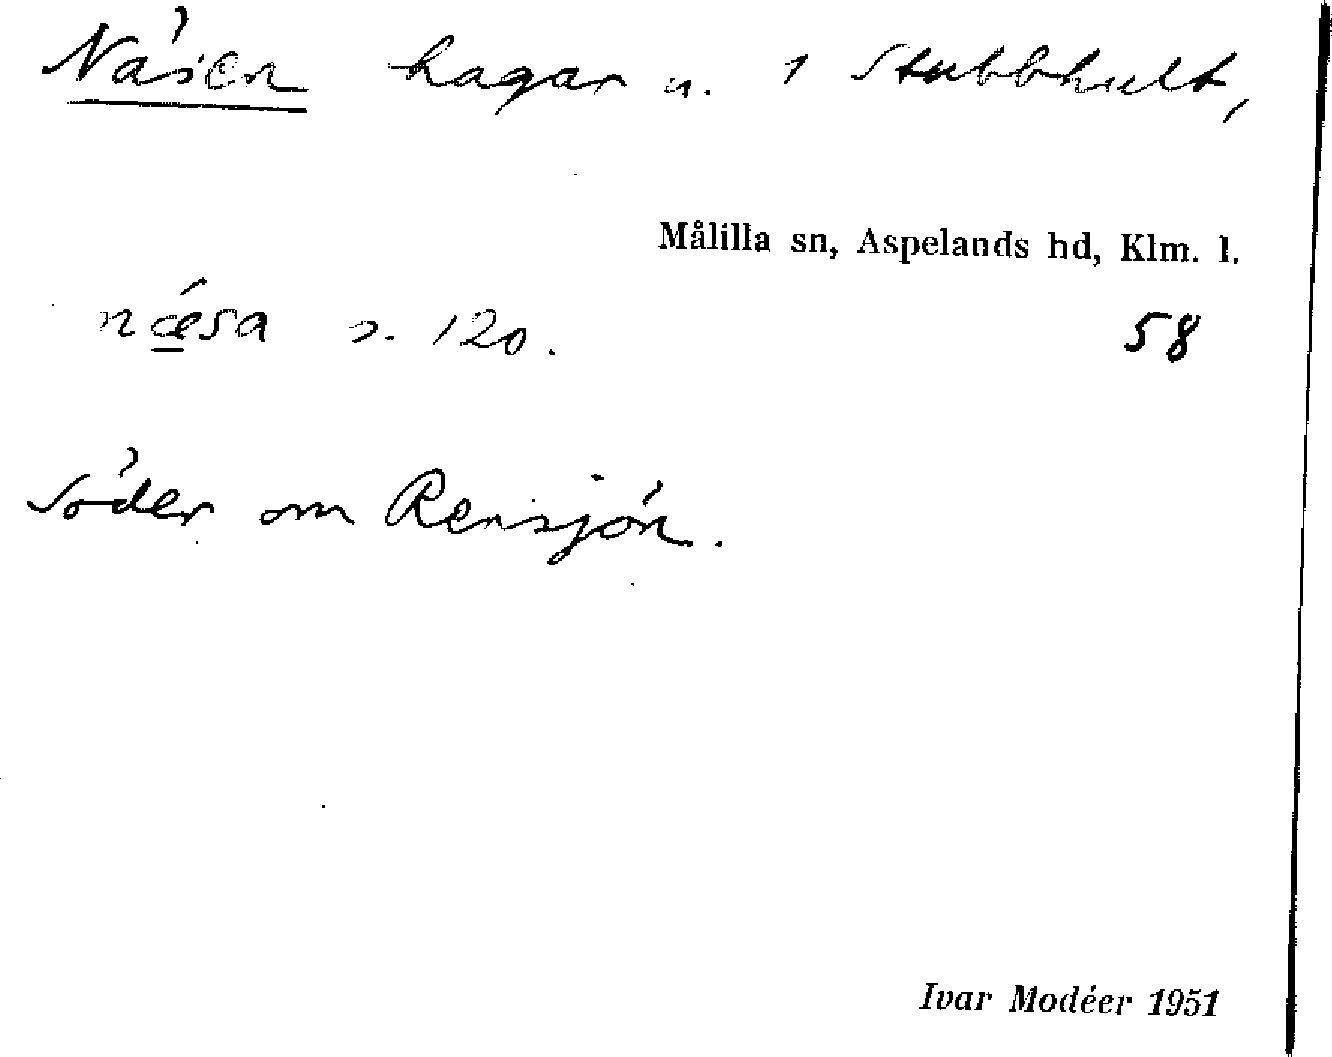 Näsen hagar u. 1 Stubbhult,
Målilla sn, Aspelands hd, Klm. l.
nǽ̲sa s. 120. 58
Söder om Rensjön.
Ivar Modéer 1951